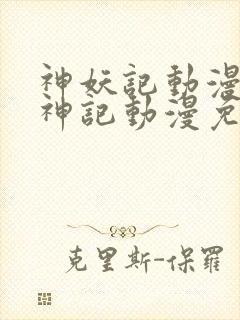 神妖記動漫
神記動漫免
克里斯-保羅